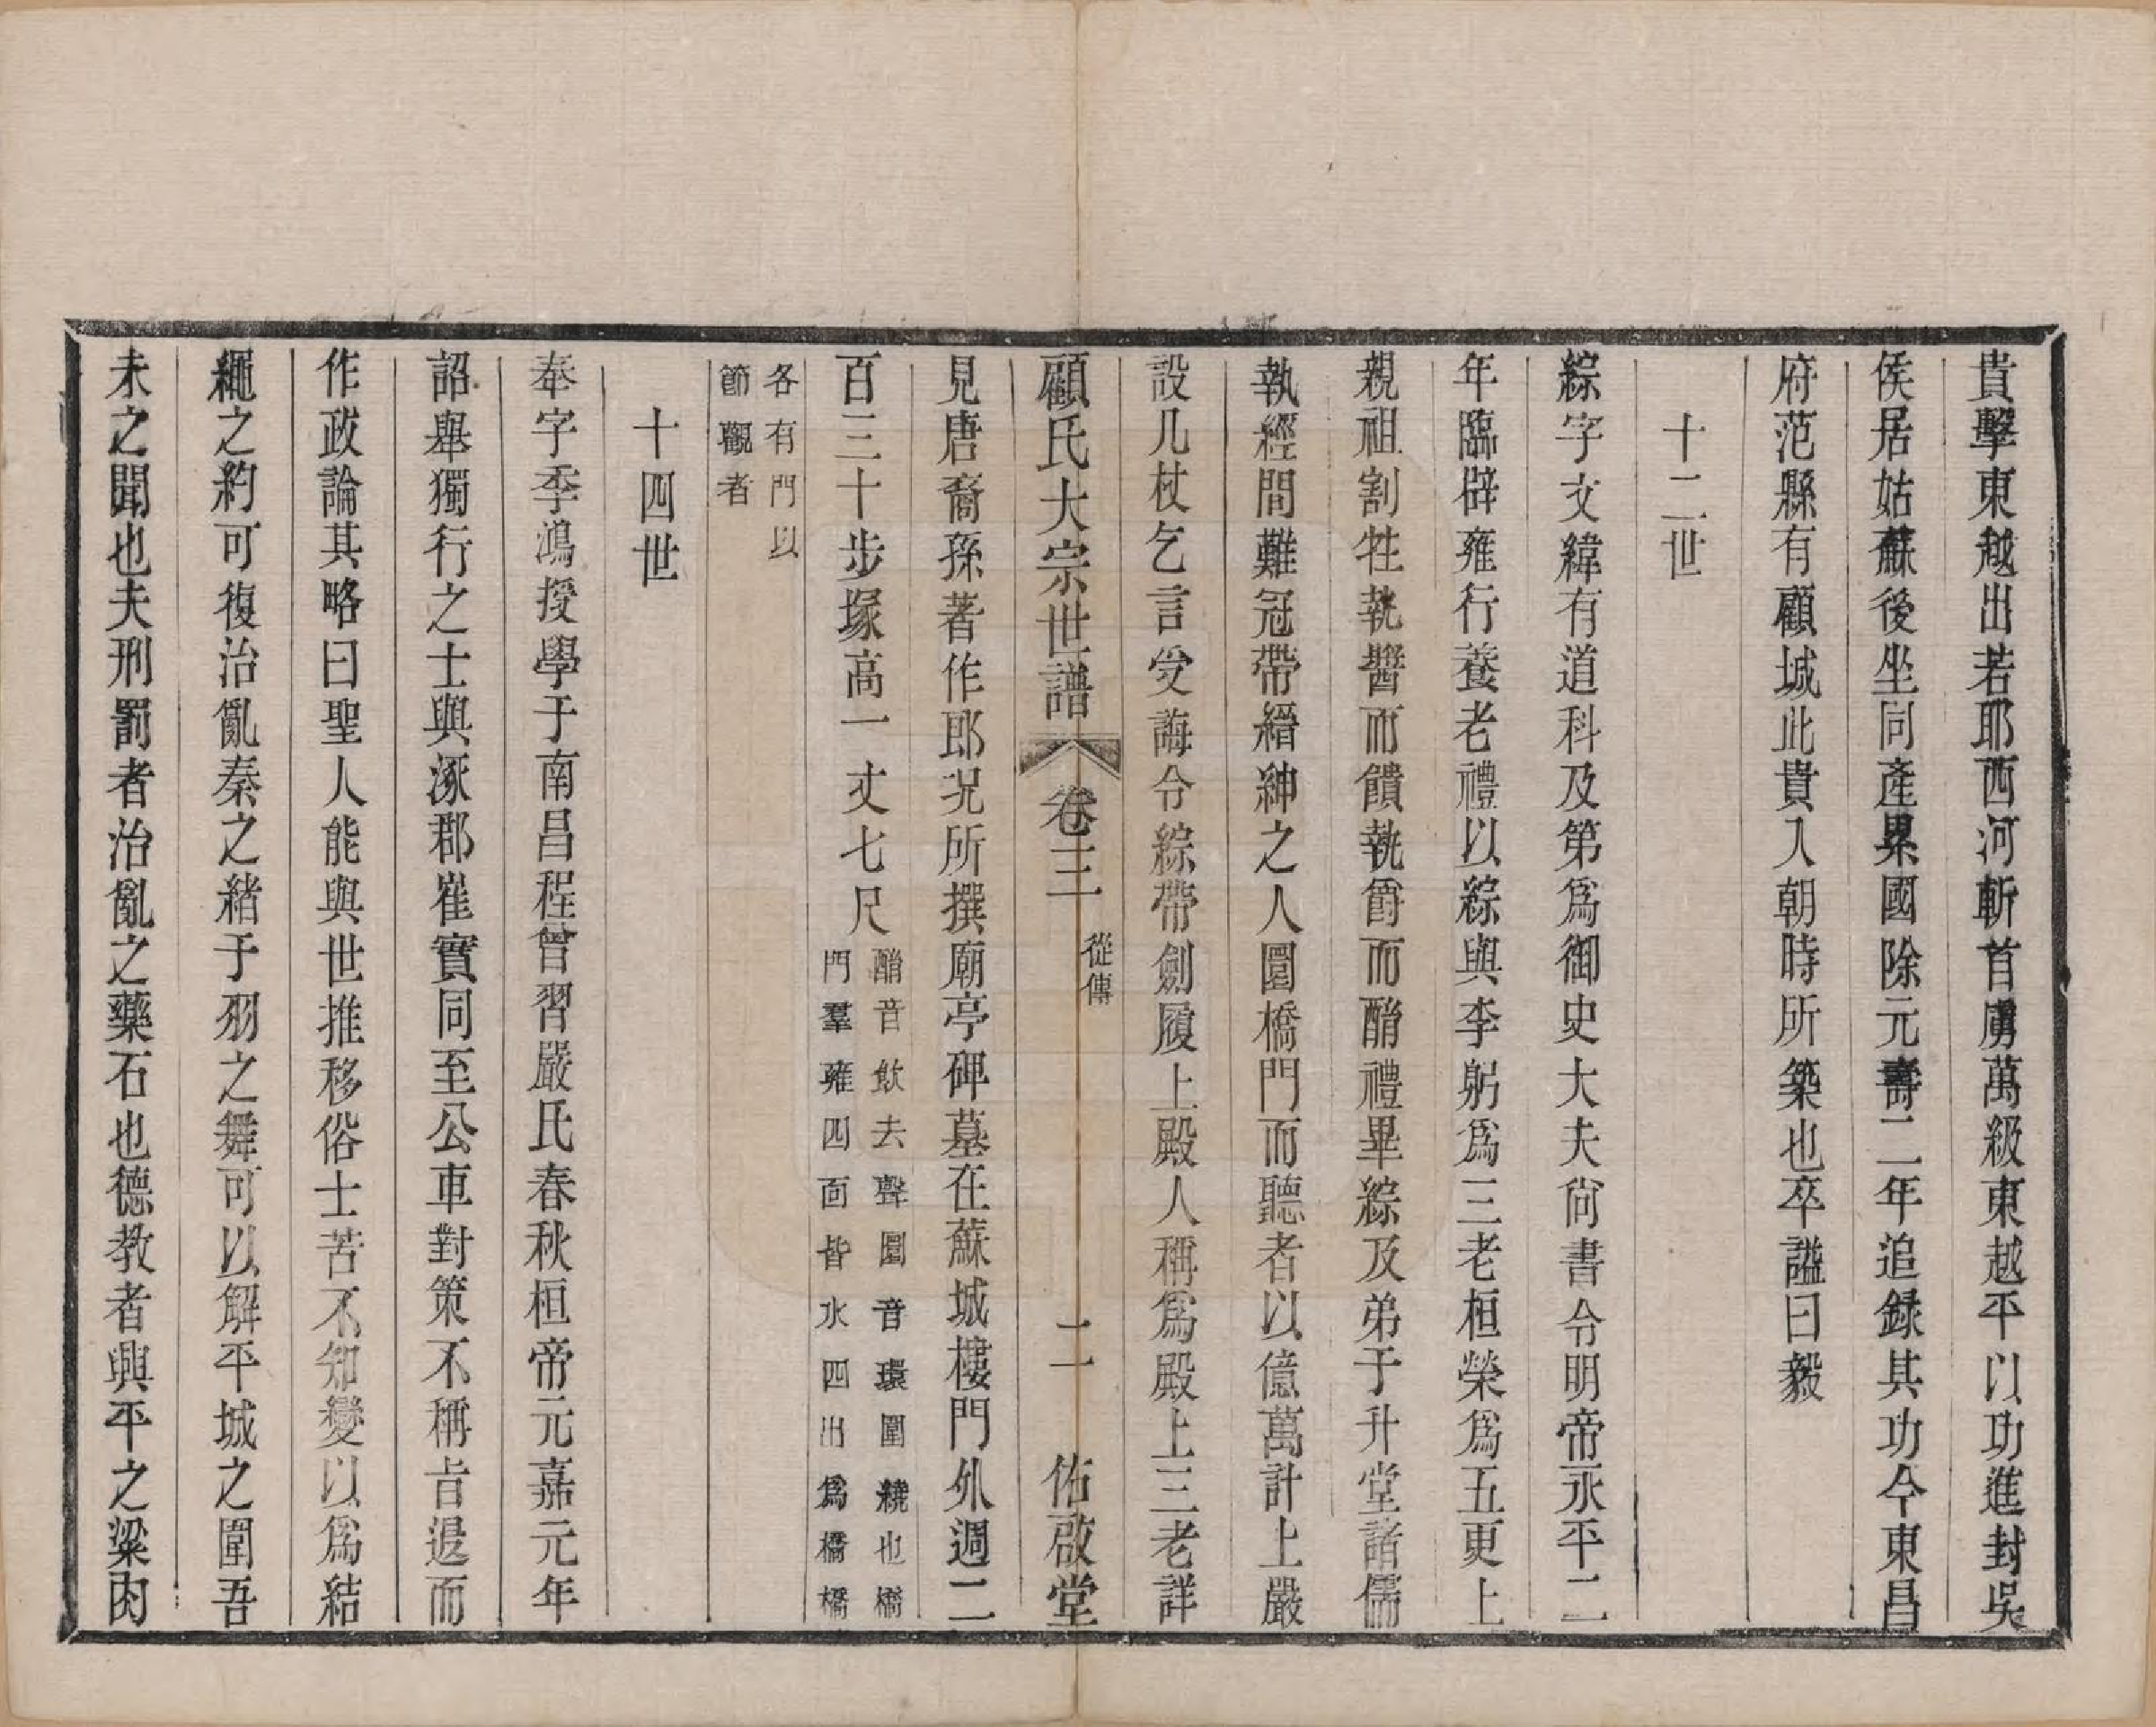 貴擊東越出若耶西河斬首虜萬級東越平以功進封吳
侯居姑蘇後坐同產累國除元壽二年追錄其功今東昌
府范縣有顧城此貴入朝時所築也卒謚曰毅
十二世
綜字文緯有道科及第爲御史大夫尙書令明帝永平二
年臨辟雍行養老禮以綜與李躬爲三老桓榮爲五更上
親袒割牲執醬而饋執爵而酳禮畢綜及弟于升堂諸儒
執經間難冠帶縉紳之人圜橋門而聽者以億萬計上嚴
設几杖乞言受誨令綜帶劍履上殿人稱爲殿上三老詳
顧氏大宗世譜 卷三 從傳 二 佑啟堂
見唐裔孫著作郎况所撰廟亭碑墓在蘇城樓門外週二
百三十步塚高一丈七尺 酳音飲去聲圜音環圍繞也橋
門羣雍四面皆水四出爲橋橋
各有門以
節觀者
十四世
奉字季鴻授學于南昌程曾習嚴氏春秋桓帝元嘉元年
詔舉獨行之士與涿郡崔實同至公車對策不稱旨退而
作政論其略曰聖人能與世推移俗士苦不知變以爲結
繩之約可復治亂秦之緒于羽之舞可以解平城之圍吾
未之聞也夫刑罰者治亂之藥石也德教者興平之粱肉